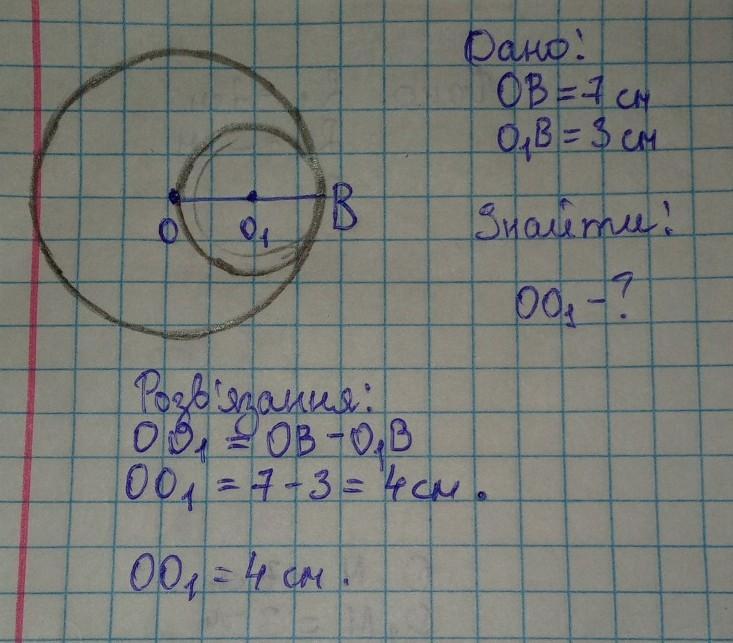 Дано:
OB = 7 см
O₁B = 3 см
O
O₁
B
Знайти:
OO₁ - ?
Розв'язання:
OO₁ = OB - O₁B
OO₁ = 7 - 3 = 4 см.
OO₁ = 4 см.